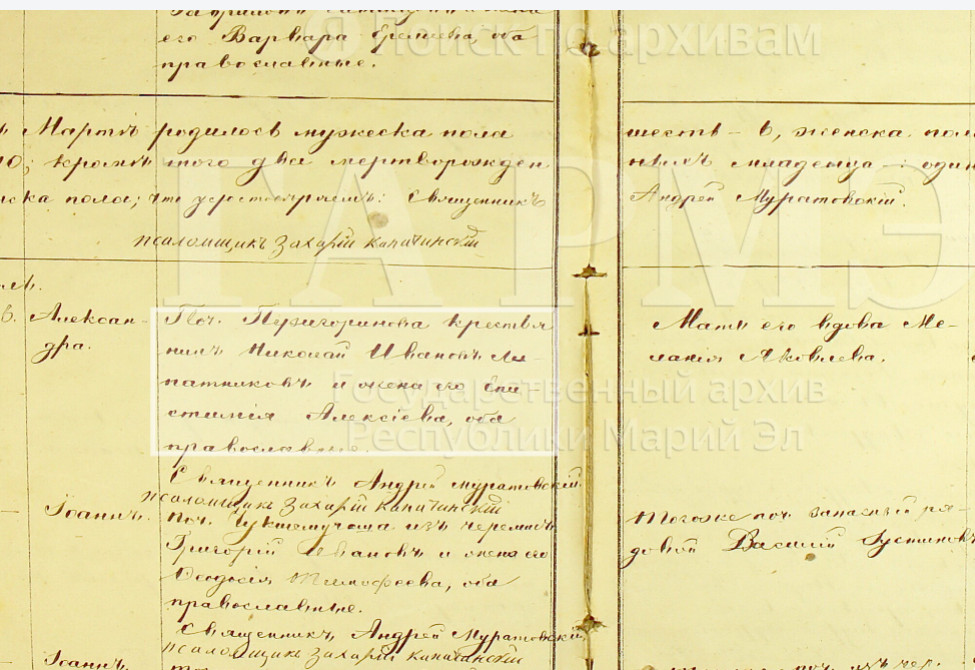 его Варвара Еремеева, оба
православные.
Мартѣ родилось мужеска пола
шесть – 6, женска пол
10; кромѣ того два мертворожден
ныхъ младенца – : один
ска пола; что удостовѣряемъ: Священникъ
Андрей Муратовскій.
псаломщикъ Захарій Капачинскій
6. Алексан-
дра.
Поч. Пузигоринова крестья
нинъ Николай Ивановъ Ли-
патниковъ и жена его Епи
стимія Алексіева, оба
православные.
Мать его вдова Ме-
ланія Яковлева.
Священникъ Андрей Муратовскій
псаломщикъ Захарій Капачинскій
Іоаннъ.
Поч. изъ черемисъ
Григорій Ивановъ и жена его
Ѳеодосія Тимофеева, оба
православные.
Тогоже поч. запасный ря-
довой Василій Густиновъ
Священникъ Андрей Муратовскій
псаломщикъ Захарій Капачинскій
Іоаннъ.
Я Поиск по архивам
ГАРМЭ
Государственный архив
Республики Марий Эл